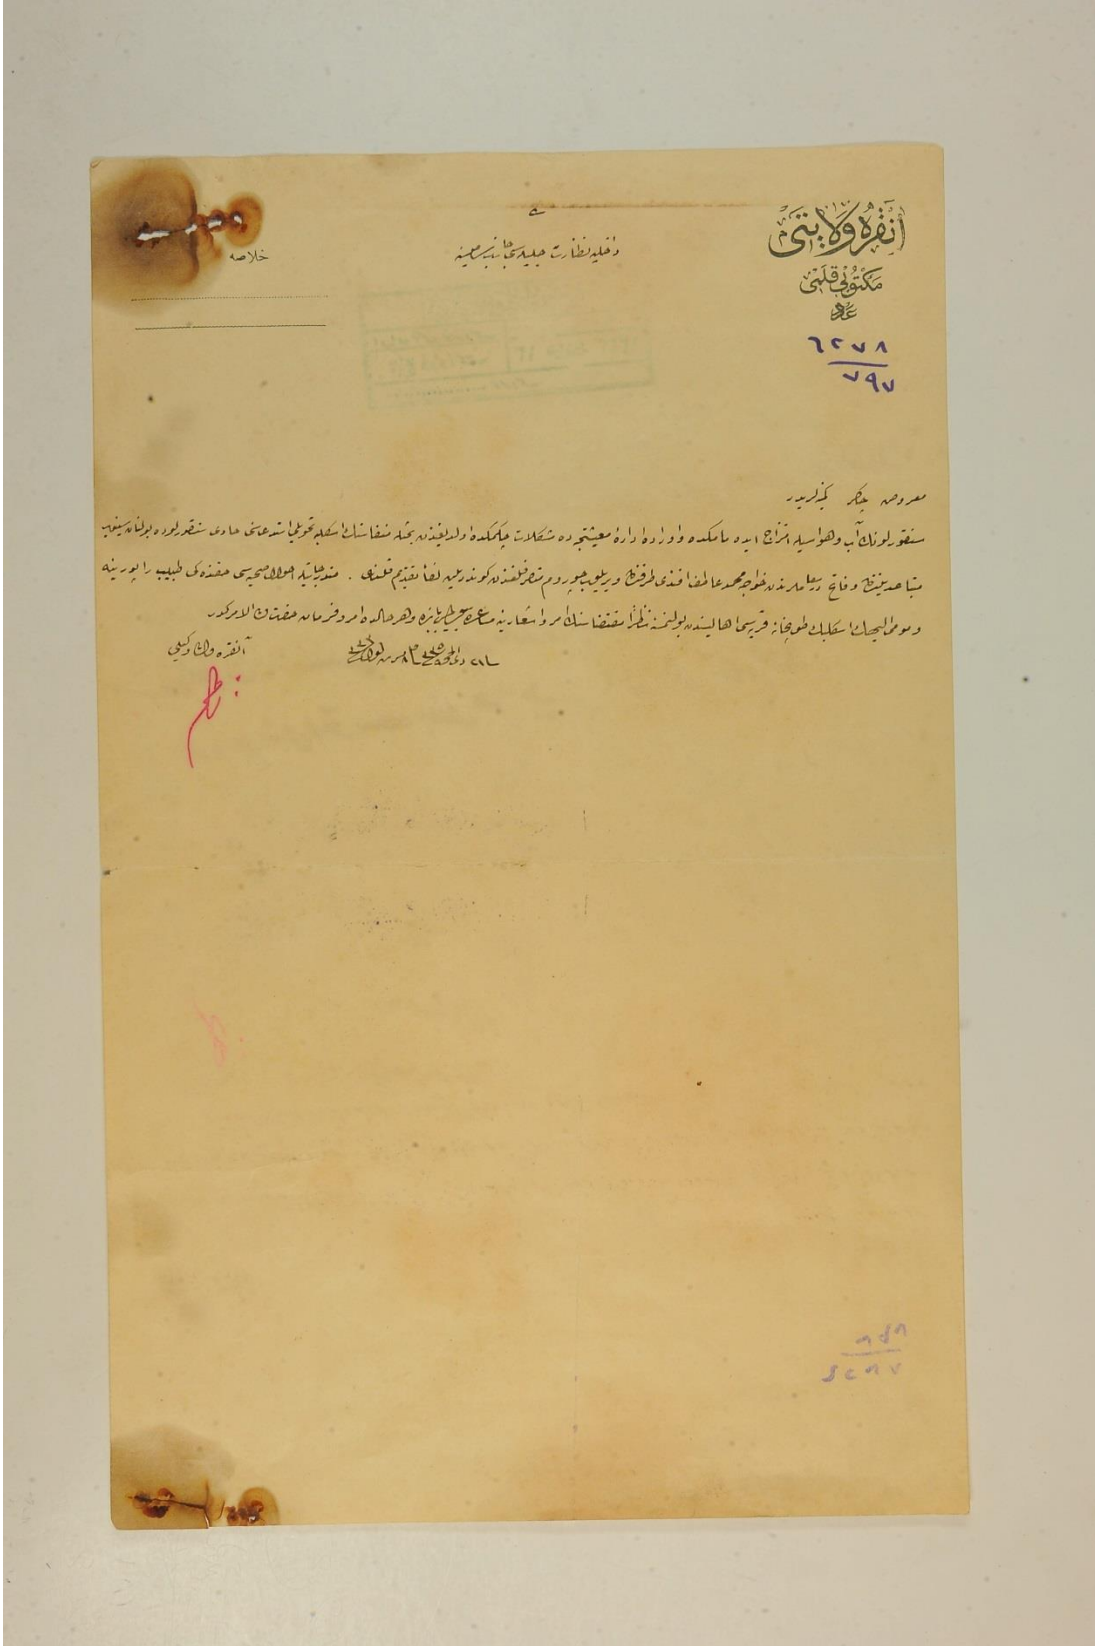 أنقره ولايتى
مكتوبى قلمى
عدد
٦٢٧٨
٧٩٧
خلاصه
داخليه نظارت جليله‌سى جانب
معروض چاكر كمينه‌لريدر
سنقورلونك آب وهواسيله امتزاج ايده مامكده و اوراده اداره معيشتجه ده مشكلات چكمكده اولديغندن بحثله منفاسنك اسكليبه تحويلى استدعاسنى حاوى سنقورلوده بولنان سينوب
مبتاعديندن و فاتح درسعاملرندن خواجه محمد عاطف افندى طرفندن ويريلوب چوروم متصرفلغندن كوندريلن لفاً تقديم قلندى . مندرجاتيله احوال صحيه‌سى حقنده كى طبيب راپورينه
و مومى اليهك اسكليبك طوپخانه قريه‌سى اهاليسندن بولنمسنه نظراً مقتضاسنك امر و اشعارينه وهر حالده امر و فرمان حضرت من له الامركدر
آنقره والى وكيلى